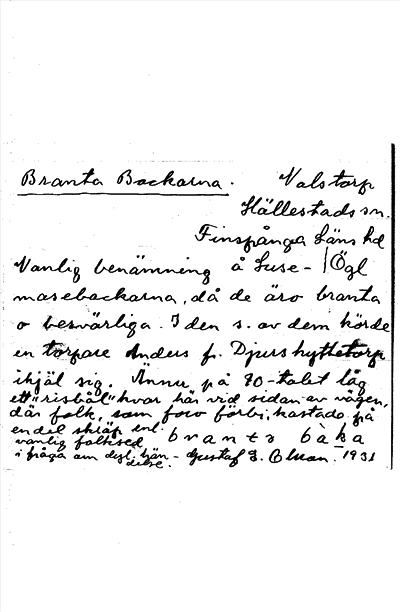 Branta Backarna. Valstorp
Hällestads sn.
Finspånga läns hd
Ögl
Vanlig benämning å Luse-
masebackarna, då de äro branta
o besvärliga. I den s. av dem körde
en torpare Anders fr. Djurshyttetorp
ihjäl sig. Ännu på 70-talet låg
ett "risbål" kvar här vid sidan av vägen,
där folk, som foro förbi, kastade på
en del skräp enl.
vanlig folksed
i fråga om dyl. hän-
delse.
branta bàka
Gustaf I. Olsson. 1931